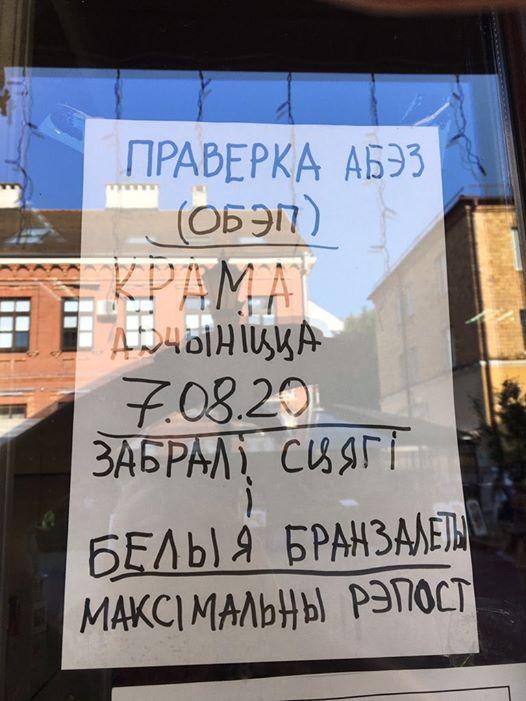 ПРАВЕРКА АБЭЗ
(ОБЭП)
КРАМА
АДЧЫНІЦЦА
7.08.20
ЗАБРАЛІ СЦЯГІ
І
БЕЛЫЯ БРАНЗАЛЕТЫ
МАКСІМАЛЬНЫ РЭПОСТ